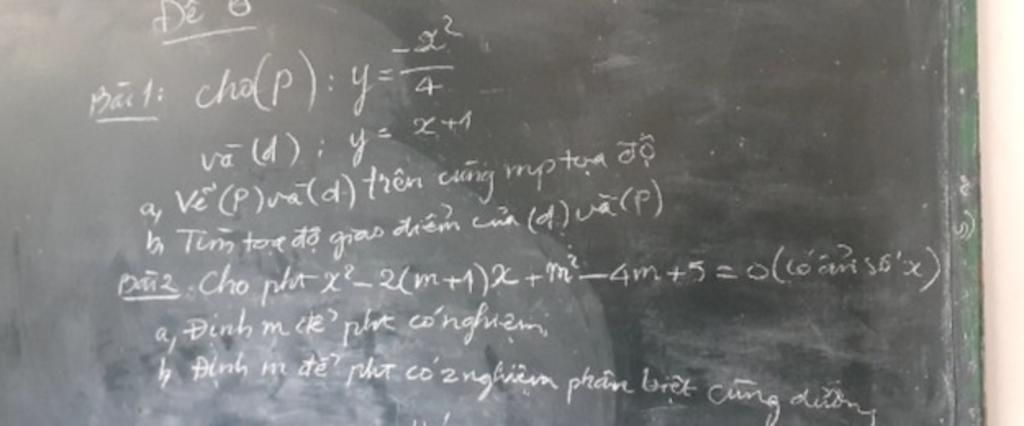 Đề 6
Bài 1: cho (P): y = -x²/4
và (d): y = x+1
a, Vẽ (P) và (d) trên cùng mp tọa độ
b, Tìm tọa độ giao điểm của (d) và (P)
Bài 2. Cho pht x² - 2(m+1)x + m² - 4m + 5 = 0 (có ẩn số x)
a, Định m để pht có nghiệm,
b, Định m để pht có 2 nghiệm phân biệt cùng dương,